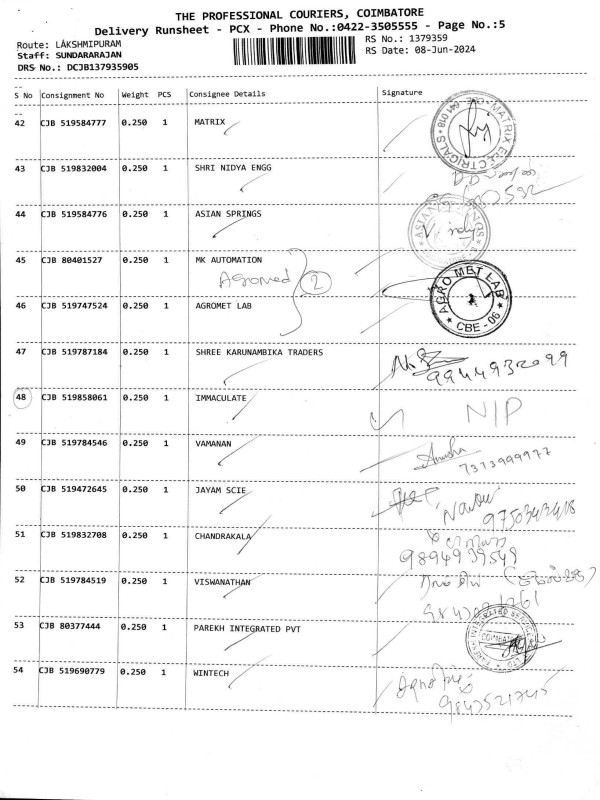 THE PROFESSIONAL COURIERS, COIMBATORE
Delivery Runsheet - PCX - Phone No.:0422-3505555 - Page No.:5
Route: LAKSHMIPURAM
RS No.: 1379359
Staff: SUNDARARAJAN
RS Date: 08-Jun-2024
DRS No.: DCJB137935905
S No Consignment No Weight PCS Consignee Details Signature
42 CJB 519584777 0.250 1 MATRIX
MATRIX ELECTRICALS
43 CJB 519832004 0.250 1 SHRI NIDYA ENGG
44 CJB 519584776 0.250 1 ASIAN SPRINGS
45 CJB 80401527 0.250 1 MK AUTOMATION
2
46 CJB 519747524 0.250 1 AGROMET LAB
AGRO MET LAB
CBE - 06
47 CJB 519787184 0.250 1 SHREE KARUNAMBIKA TRADERS
9944932099
48 CJB 519858061 0.250 1 IMMACULATE
N/P
49 CJB 519784546 0.250 1 VAMANAN
Anusha
7373999977
50 CJB 519472645 0.250 1 JAYAM SCIE
51 CJB 519832708 0.250 1 CHANDRAKALA
9894939549
52 CJB 519784519 0.250 1 VISWANATHAN
53 CJB 80377444 0.250 1 PAREKH INTEGRATED PVT
54 CJB 519690779 0.250 1 WINTECH